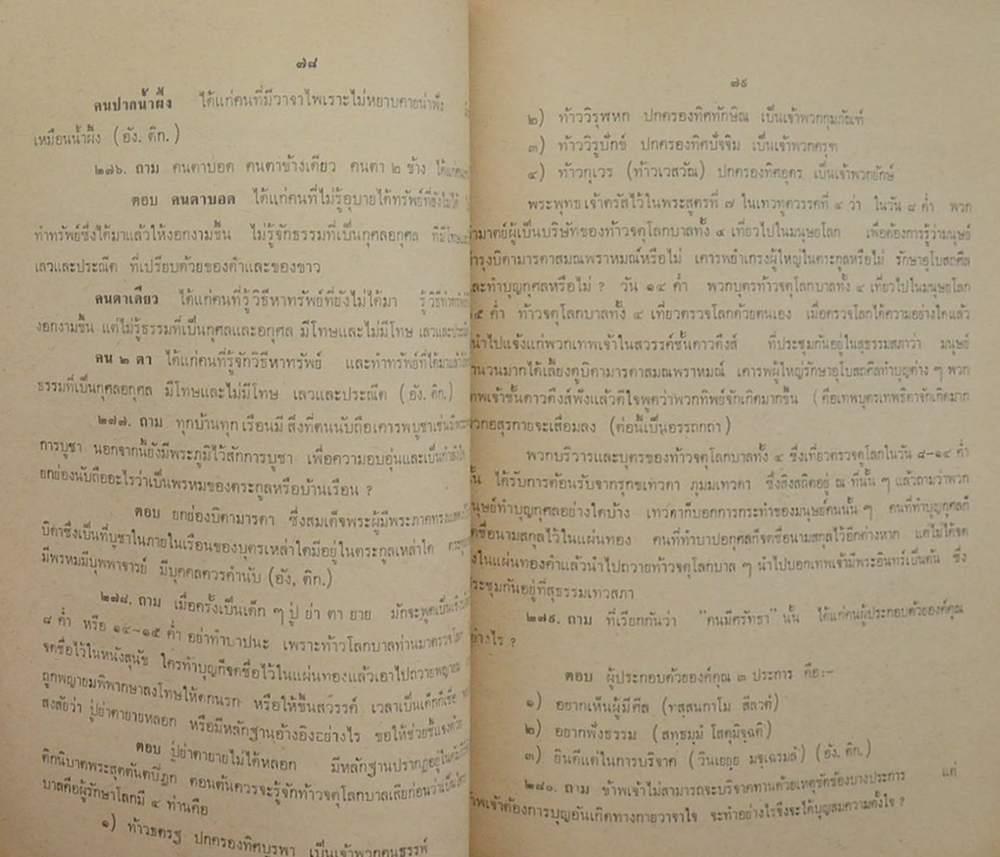 ๗๘
คนปากน้ำผึ้ง ได้แก่คนที่มีวาจาไพเราะไม่หยาบคายน่าฟัง
เหมือนน้ำผึ้ง (อัง. ติก.)
๒๗๖. ถาม คนตาบอด คนตาข้างเดียว คนตา ๒ ข้าง ได้แก่
ตอบ คนตาบอด ได้แก่คนที่ไม่รู้อุบายได้ทรัพย์ที่ยังไม่ได้
ทำทรัพย์ซึ่งได้มาแล้วให้งอกงามขึ้น ไม่รู้จักธรรมที่เป็นกุศลอกุศล ที่มีโทษ
เลวและประณีต ที่เปรียบด้วยของดำและของขาว
คนตาเดียว ได้แก่คนที่รู้วิธีหาทรัพย์ที่ยังไม่ได้มา รู้วิธีทำทรัพย์
งอกงามขึ้น แต่ไม่รู้ธรรมที่เป็นกุศลและอกุศล มีโทษและไม่มีโทษ เลวและ
คน ๒ ตา ได้แก่คนที่รู้จักวิธีหาทรัพย์ และทำทรัพย์ที่ได้มาแล้ว
ธรรมที่เป็นกุศลอกุศล มีโทษและไม่มีโทษ เลวและประณีต (อัง. ติก.)
๒๗๗. ถาม ทุกบ้านทุกเรือนมีสิ่งที่ตนนับถือเคารพบูชาเช่น
การบูชา นอกจากนี้ยังมีพระภูมิไว้สักการบูชา เพื่อความอบอุ่นและเป็น
ยกย่องนับถืออะไรว่าเป็นพรหมของตระกูลหรือบ้านเรือน ?
ตอบ ยกย่องบิดามารดา ซึ่งสมเด็จพระผู้มีพระภาคทรง
บิดาซึ่งเป็นที่บูชาในภายในเรือนของบุตรเหล่าใดมีอยู่ในตระกูลเหล่าใด
มีพรหมมีบุพพาจารย์ มีบุคคลควรคำนับ (อัง, ติก.)
๒๗๘. ถาม เมื่อครั้งเป็นเด็ก ๆ ปู่ ย่า ตา ยาย มักจะพูด
๘ ค่ำ หรือ ๑๔-๑๕ ค่ำ อย่าทำบาปนะ เพราะท้าวโลกบาลท่านมาตรวจ
จดชื่อไว้ในหนังสุนัข ใครทำบุญก็จดชื่อไว้ในแผ่นทองแล้วเอาไปถวายพญายม
ถูกพญายมพิพากษาลงโทษให้ตกนรก หรือให้ขึ้นสวรรค์ เวลาเป็นเด็กก็เชื่อ
สงสัยว่า ปู่ย่าตายายหลอก หรือมีหลักฐานอ้างอิงอย่างไร ขอให้ช่วยชี้แจงด้วย
ตอบ ปู่ย่าตายายไม่ได้หลอก มีหลักฐานปรากฏอยู่ใน
ติกนิบาตพระสุตตันตปิฎก ตอนต้นควรจะรู้จักท้าวจตุโลกบาลเสียก่อน
บาลคือผู้รักษาโลกมี ๔ ท่านคือ
๑) ท้าวธตรฐ ปกครองทิศบูรพา เป็นเจ้าพวกคนธรรพ์
๗๙
๒) ท้าววิรุฬหก ปกครองทิศทักษิณ เป็นเจ้าพวกกุมภัณฑ์
๓) ท้าววิรูปักข์ ปกครองทิศปัจจิม เป็นเจ้าพวกครุฑ
๔) ท้าวกุเวร (ท้าวเวสวัณ) ปกครองทิศอุดร เป็นเจ้าพวกยักษ์
พระพุทธเจ้าตรัสไว้ในพระสูตรที่ ๗ ในเทวทูตวรรคที่ ๔ ว่า ในวัน ๘ ค่ำ พวก
ามาตย์ผู้เป็นบริษัทของท้าวจตุโลกบาลทั้ง ๔ เที่ยวไปในมนุษยโลก เพื่อต้องการรู้ว่ามนุษย์
ำรุงบิดามารดาสมณพราหมณ์หรือไม่ เคารพยำเกรงผู้ใหญ่ในตระกูลหรือไม่ รักษาอุโบสถศีล
ละทำบุญกุศลหรือไม่ ? วัน ๑๔ ค่ำ พวกบุตรท้าวจตุโลกบาลทั้ง ๔ เที่ยวไปในมนุษยโลก
๕ ค่ำ ท้าวจตุโลกบาลทั้ง ๔ เที่ยวตรวจโลกด้วยตนเอง เมื่อตรวจโลกได้ความอย่างใดแล้ว
นำไปแจ้งแก่พวกเทพเจ้าในสวรรค์ชั้นดาวดึงส์ ที่ประชุมกันอยู่ในสุธรรมสภาว่า มนุษย์
ำนวนมากได้เลี้ยงดูบิดามารดาสมณพราหมณ์ เคารพผู้ใหญ่รักษาอุโบสถศีลทำบุญต่าง ๆ พวก
ทพเจ้าชั้นดาวดึงส์ฟังแล้วดีใจพูดว่าพวกทิพย์จักเกิดมากขึ้น (คือเทพบุตรเทพธิดาจักเกิดมาก
วกอสุรกายจะเสื่อมลง (ต่อนี้เป็นอรรถกถา)
พวกบริวารและบุตรของท้าวจตุโลกบาลทั้ง ๔ ซึ่งเที่ยวตรวจดูโลกในวัน ๘-๑๔ ค่ำ
ั้น ได้รับการต้อนรับจากรุกขเทวดา ภุมมเทวดา ซึ่งสิงสถิตอยู่ ณ ที่นั้น ๆ แล้วถามว่าพวก
นุษย์ทำบุญกุศลอย่างใดบ้าง เทวดาก็บอกการกระทำของมนุษย์คนนั้น ๆ คนที่ทำบุญกุศลก็
ดชื่อนามสกุลไว้ในแผ่นทอง คนที่ทำบาปอกุศลก็จดชื่อนามสกุลไว้อีกต่างหาก แต่ไม่ได้จด
งในแผ่นทองคำแล้วนำไปถวายท้าวจตุโลกบาล ๆ นำไปบอกเทพเจ้ามีพระอินทร์เป็นต้น ซึ่ง
ระชุมกันอยู่ที่สุธรรมเทวสภา
๒๗๙. ถาม ที่เรียกกันว่า "คนมีศรัทธา" นั้น ได้แก่คนผู้ประกอบด้วยองค์คุณ
ย่างไร ?
ตอบ ผู้ประกอบด้วยองค์คุณ ๓ ประการ คือ:-
๑) อยากเห็นผู้มีศีล (ทสฺสนกาโม สีลวตํ)
๒) อยากฟังธรรม (สทฺธมฺมํ โสตุมิจฺฉติ)
๓) ยินดีแต่ในการบริจาค (วินเยยฺย มจฺเฉรมลํ) (อัง. ติก.)
๒๘๐. ถาม ข้าพเจ้าไม่สามารถจะบริจาคทานด้วยเหตุขัดข้องบางประการ แต่
้าพเจ้าต้องการบุญอันเกิดทางกายวาจาใจ จะทำอย่างไรจึงจะได้บุญสมความตั้งใจ ?